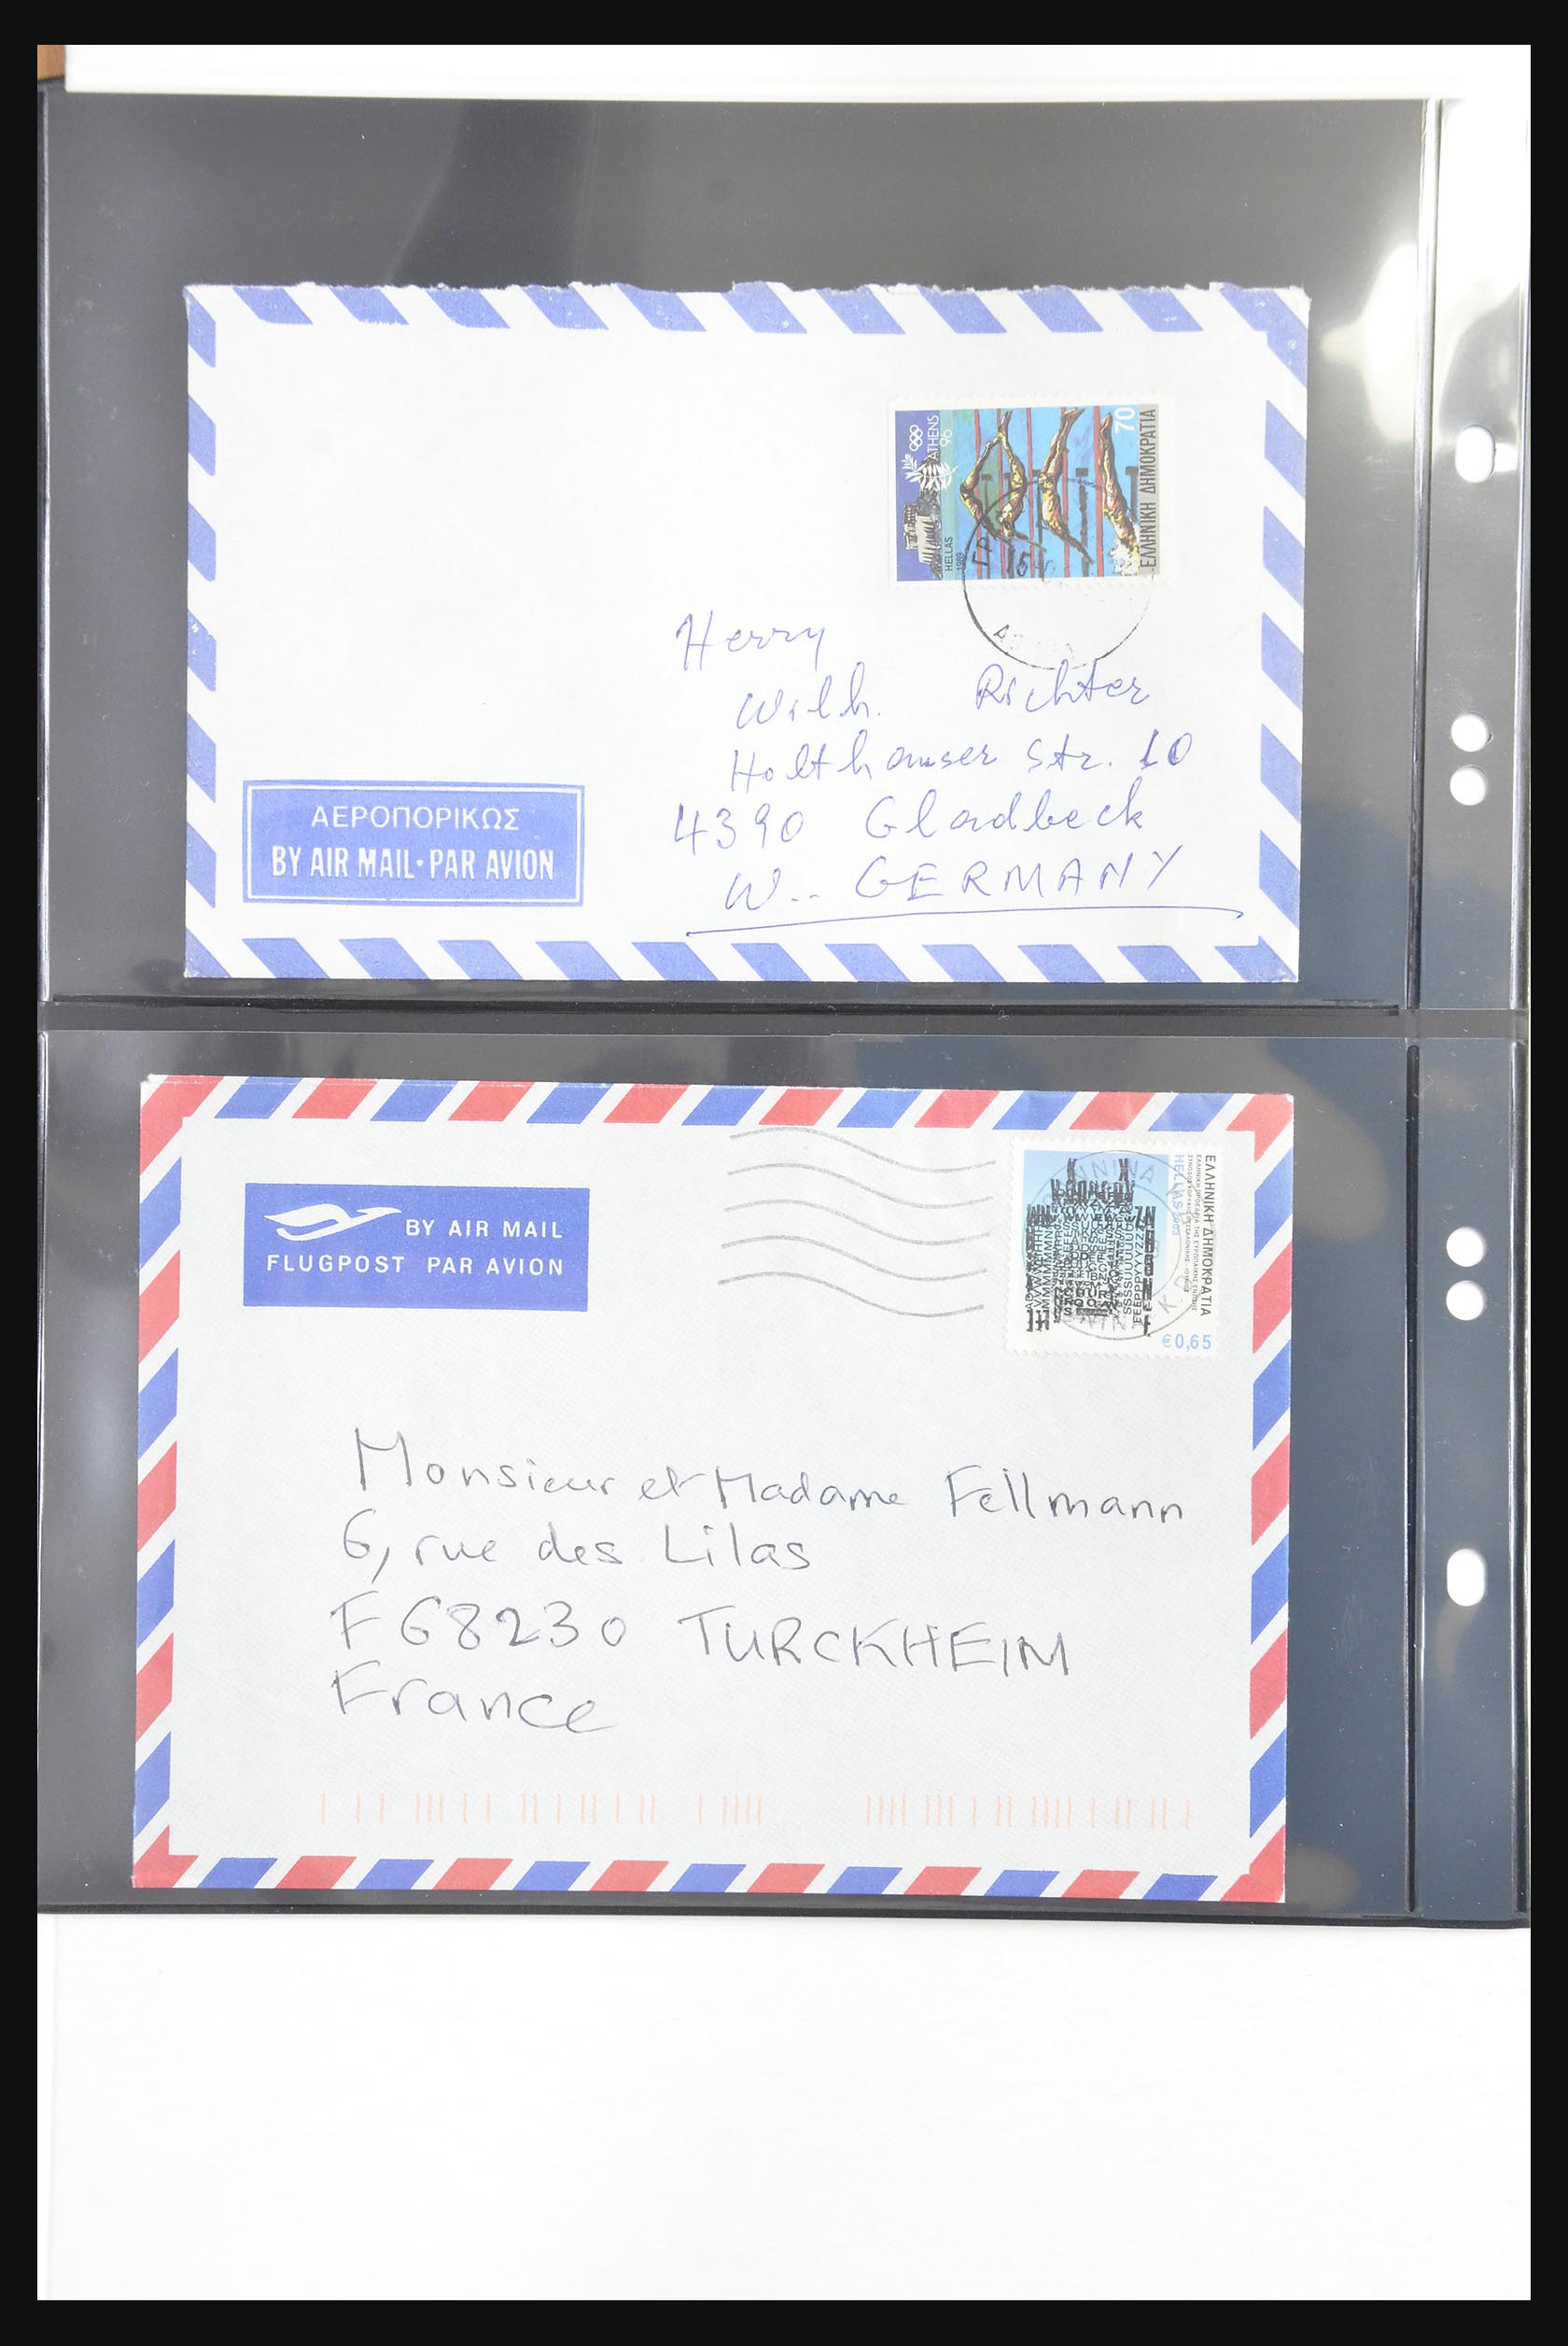 ATHENS
96
HELLAS
1989
70
ΕΛΛΗΝΙΚΗ ΔΗΜΟΚΡΑΤΙΑ
Herry
Wilh. Richter
Holthauser Str. 10
4390 Gladbeck
W.. GERMANY
ΑΕΡΟΠΟΡΙΚΩΣ
BY AIR MAIL · PAR AVION
BY AIR MAIL
FLUGPOST PAR AVION
ΕΛΛΗΝΙΚΗ ΔΗΜΟΚΡΑΤΙΑ
ΕΛΛΗΝΙΚΗ ΠΡΟΕΔΡΙΑ ΤΗΣ ΕΥΡΩΠΑΪΚΗΣ ΕΝΩΣΗΣ
HELLAS 2003
€0,65
Monsieur et Madame Fellmann
6, rue des Lilas
F 68230 TURCKHEIM
France